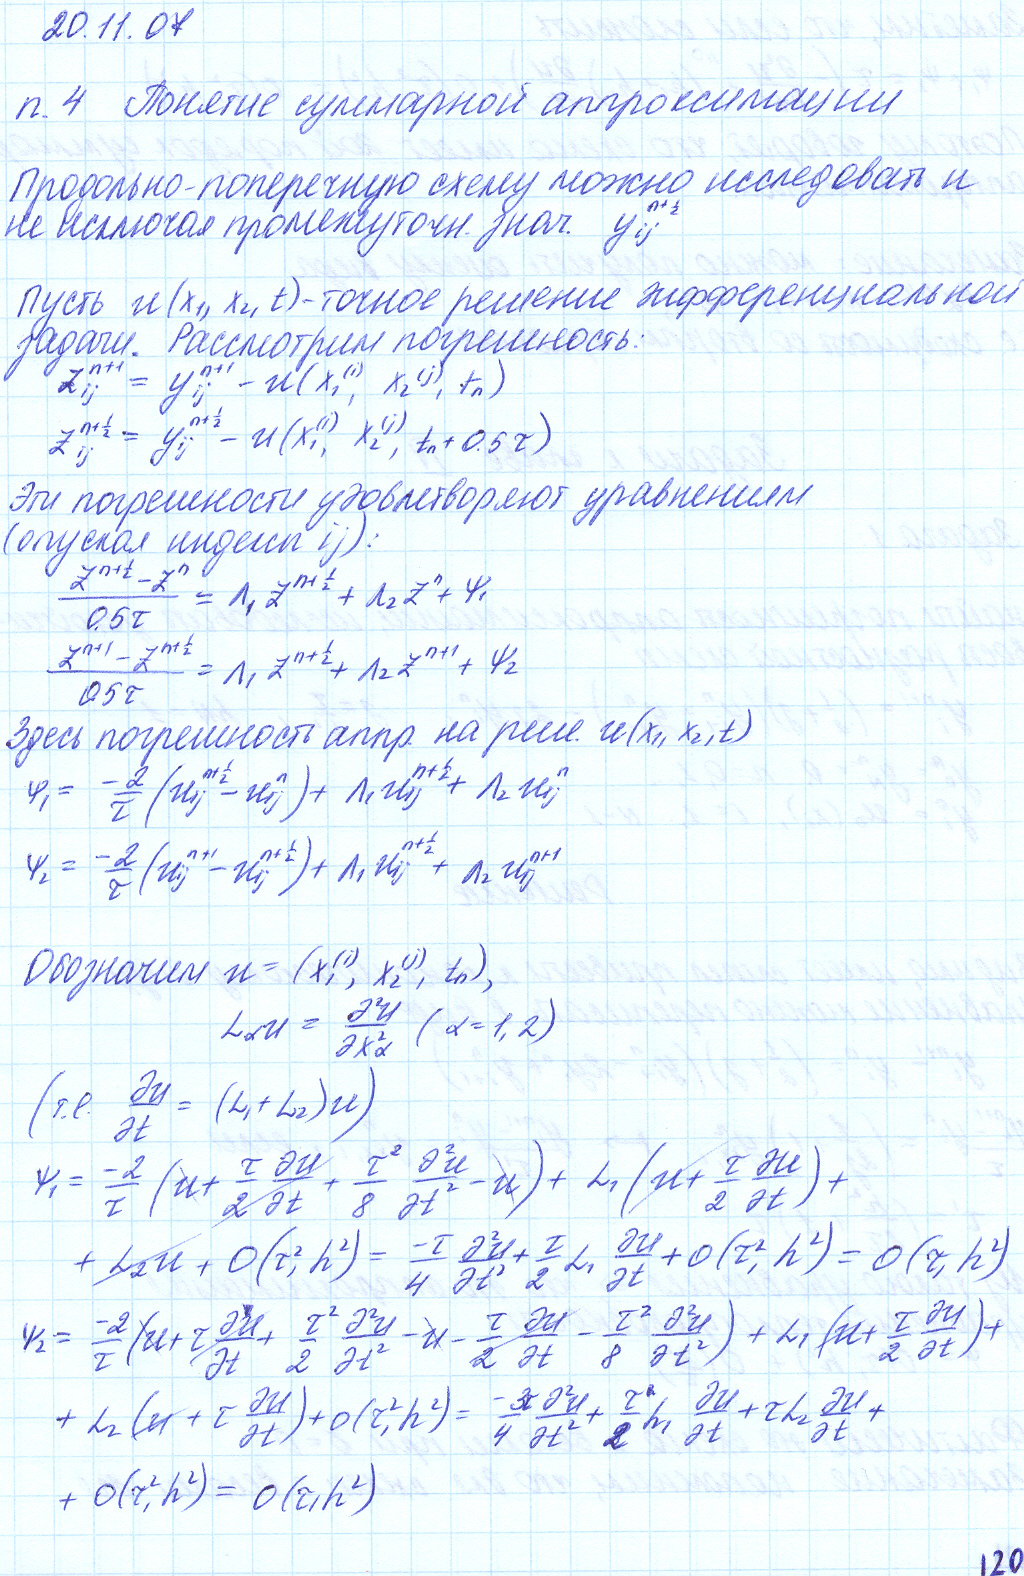 20.11.07
п. 4 Понятие суммарной аппроксимации
Продольно-поперечную схему можно исследовать и
не исключая промежуточн. знач. y_{ij}^{n+\frac{1}{2}}
Пусть u(x_1, x_2, t) - точное решение дифференциальной
задачи. Рассмотрим погрешность:
z_{ij}^{n+1} = y_{ij}^{n+1} - u(x_1^{(i)}, x_2^{(j)}, t_n)
z_{ij}^{n+\frac{1}{2}} = y_{ij}^{n+\frac{1}{2}} - u(x_1^{(i)}, x_2^{(j)}, t_n + 0.5τ)
Эти погрешности удовлетворяют уравнениям
(опуская индексы ij):
\frac{z^{n+\frac{1}{2}} - z^n}{0.5τ} = Λ_1 z^{n+\frac{1}{2}} + Λ_2 z^n + ψ_1
\frac{z^{n+1} - z^{n+\frac{1}{2}}}{0.5τ} = Λ_1 z^{n+\frac{1}{2}} + Λ_2 z^{n+1} + ψ_2
Здесь погрешность аппр. на реш. u(x_1, x_2, t)
ψ_1 = \frac{-2}{τ} (u_{ij}^{n+\frac{1}{2}} - u_{ij}^n) + Λ_1 u_{ij}^{n+\frac{1}{2}} + Λ_2 u_{ij}^n
ψ_2 = \frac{-2}{τ} (u_{ij}^{n+1} - u_{ij}^{n+\frac{1}{2}}) + Λ_1 u_{ij}^{n+\frac{1}{2}} + Λ_2 u_{ij}^{n+1}
Обозначим u = (x_1^{(i)}, x_2^{(j)}, t_n),
L_α u = \frac{∂^2 u}{∂x_α^2} (α = 1, 2)
(т.е. \frac{∂u}{∂t} = (L_1 + L_2) u)
ψ_1 = \frac{-2}{τ} (u + \frac{τ}{2} \frac{∂u}{∂t} + \frac{τ^2}{8} \frac{∂^2 u}{∂t^2} - u) + L_1 (u + \frac{τ}{2} \frac{∂u}{∂t}) +
+ L_2 u + O(τ^2, h^2) = \frac{-τ}{4} \frac{∂^2 u}{∂t^2} + \frac{τ}{2} L_1 \frac{∂u}{∂t} + O(τ^2, h^2) = O(τ, h^2)
ψ_2 = \frac{-2}{τ} (u + τ \frac{∂u}{∂t} + \frac{τ^2}{2} \frac{∂^2 u}{∂t^2} - u - \frac{τ}{2} \frac{∂u}{∂t} - \frac{τ^2}{8} \frac{∂^2 u}{∂t^2}) + L_1 (u + \frac{τ}{2} \frac{∂u}{∂t}) +
+ L_2 (u + τ \frac{∂u}{∂t}) + O(τ^2, h^2) = \frac{-3τ}{4} \frac{∂^2 u}{∂t^2} + \frac{τ}{2} L_1 \frac{∂u}{∂t} + τ L_2 \frac{∂u}{∂t} +
+ O(τ^2, h^2) = O(τ, h^2)
120